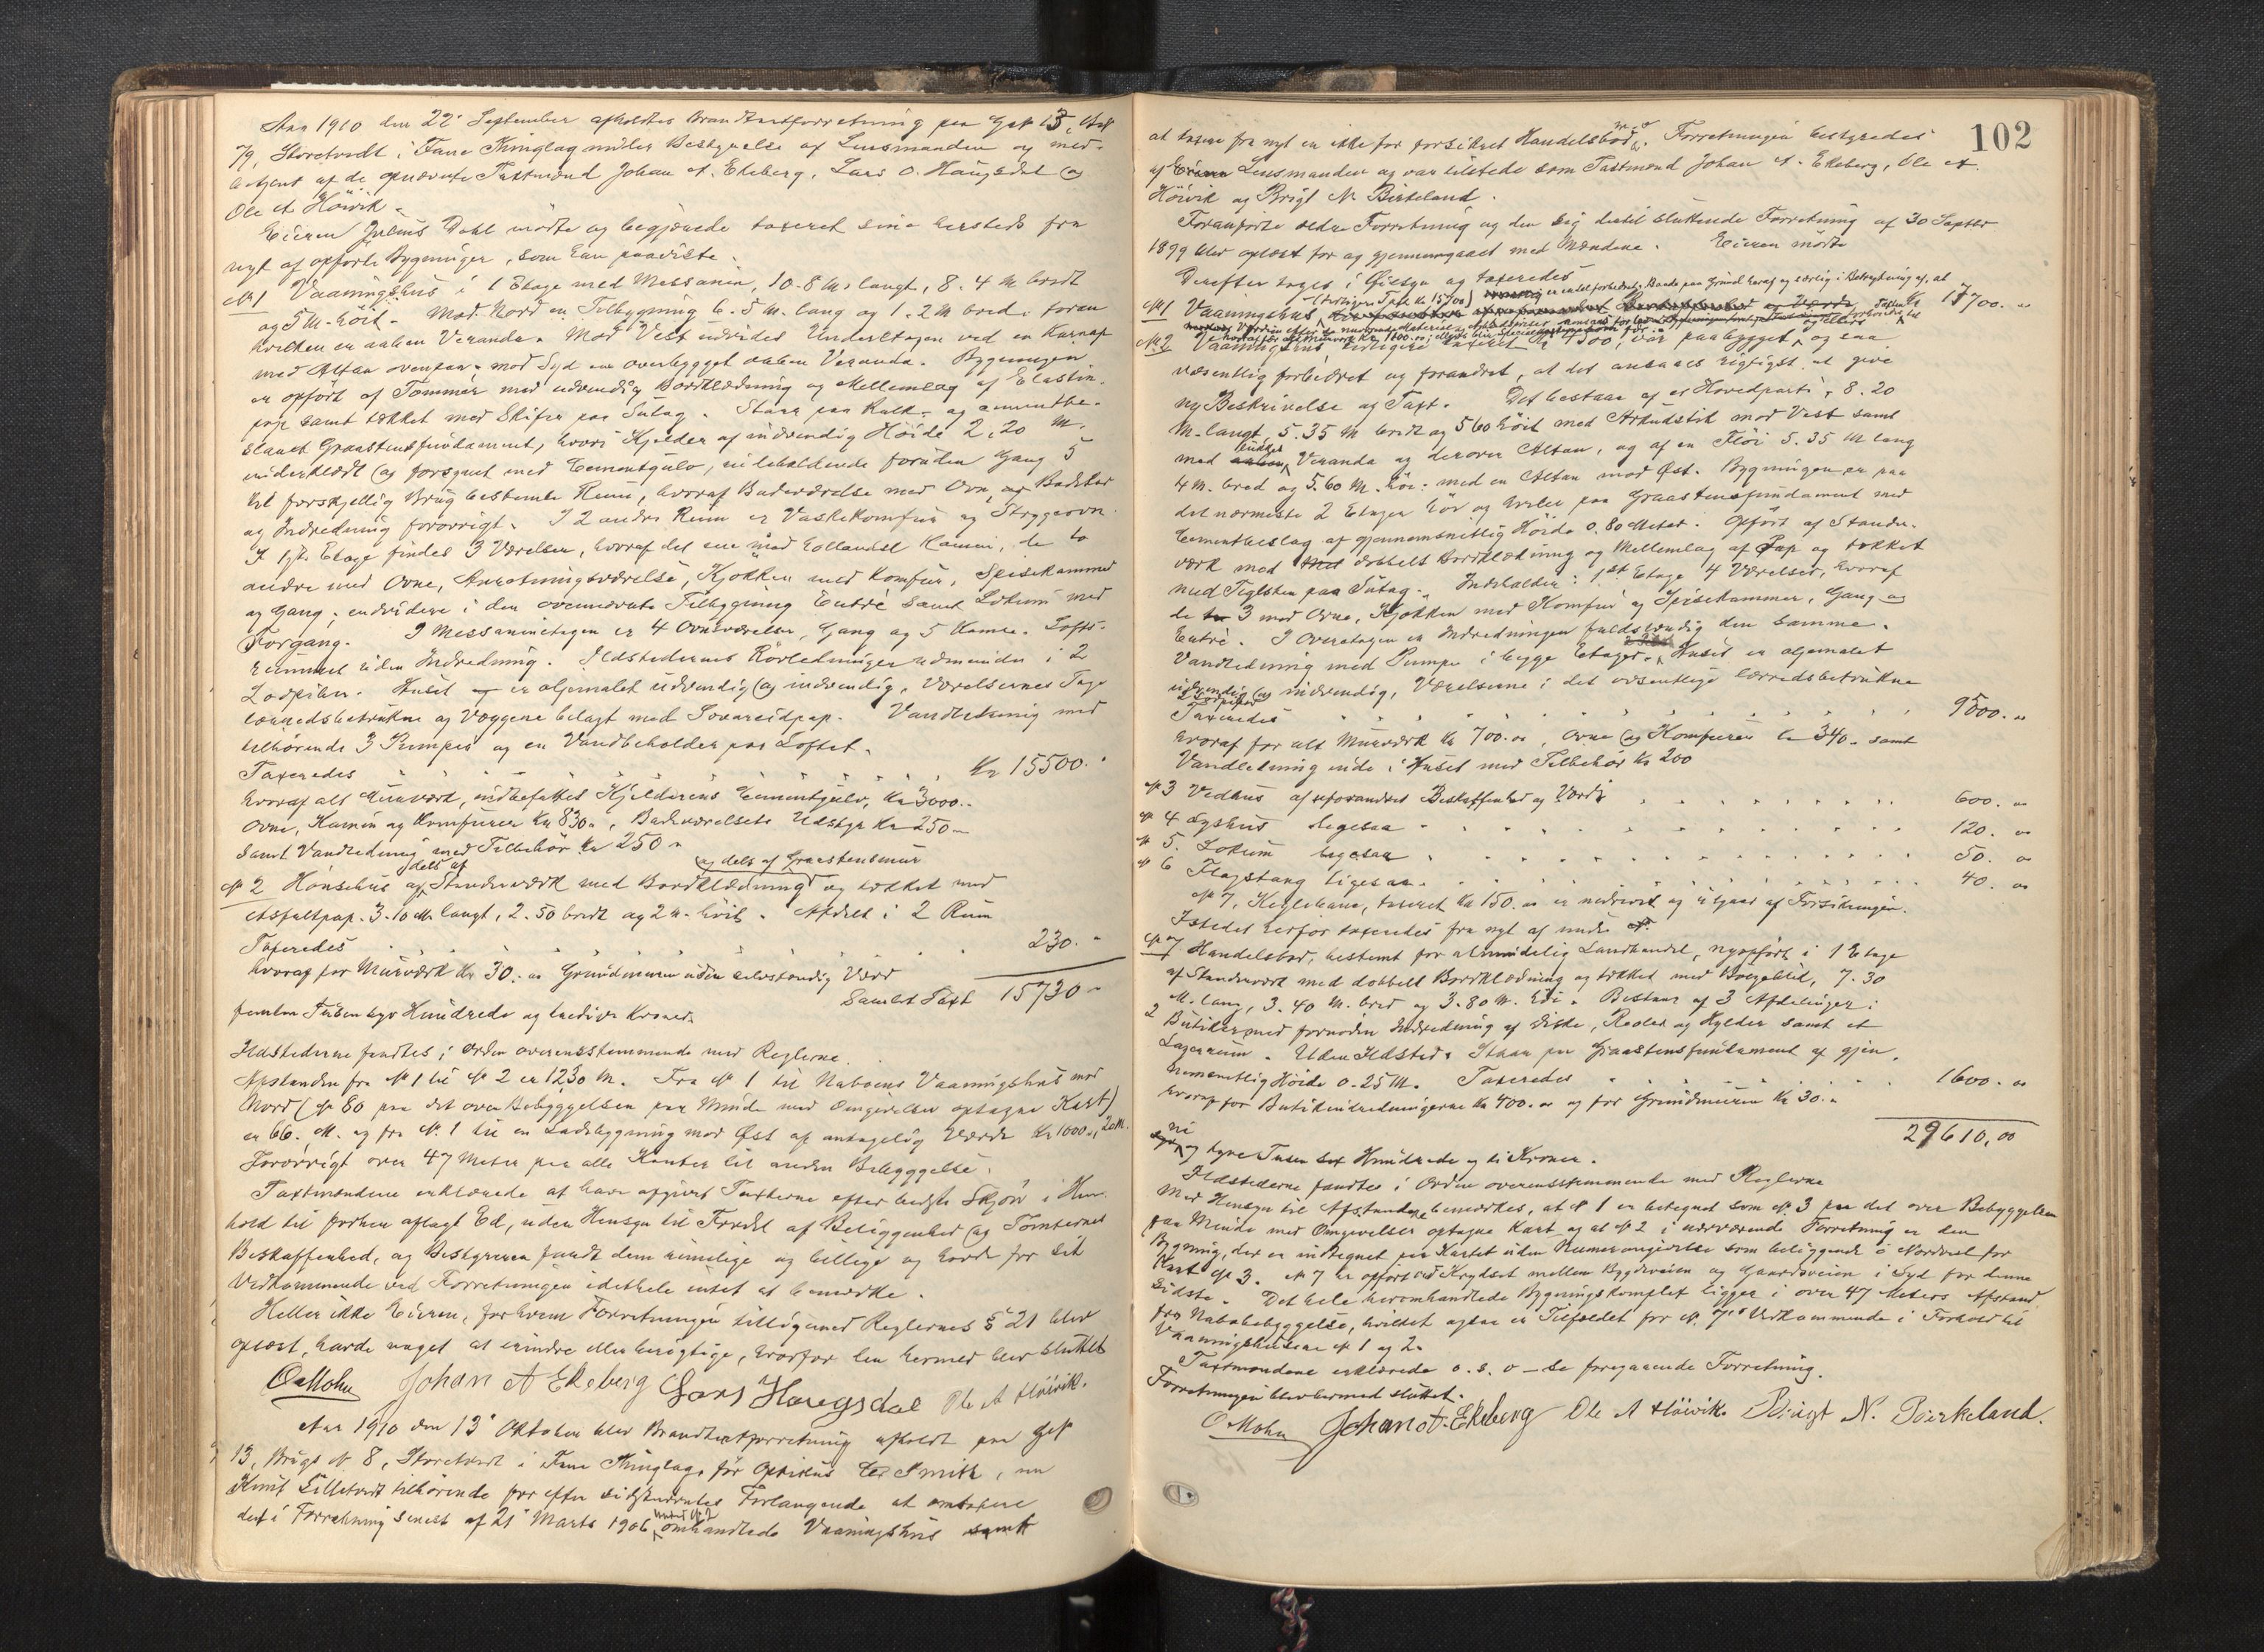 Aar 1910 den 22' September afholdtes Brandtaxtforretning paa Gnr 13, Bnr
79, Storetvedt i Fane Thinglag under Bestyrelse af Lensmanden og med-
betjent af de opnævnte Taxtmænd Johan A. Ekeberg, Lars O. Haugsdal og
Ole A Höivik.
Eieren Julius Dahl mödte og begjærede taxeret sine hersteds fra
nyt af opförte Bygninger, som han paaviste.
No 1 Vaaningshus i 1 Etage med Messanin, 10.8 M. langt, 8.4 M bredt
og 5 M. höit. Mod Nord en Tilbygning 6.5 M. lang og 1.2 M bred, foran
hvilken er aaben Veranda. Mod Vest udvides Underetagen ved en Karnap
med Altan ovenpaa, mod Syd en overbygget aaben Veranda. Bygningen
er opfört af Tömmer med udvendig Bordklædning og Mellemlag af Elastin-
pap samt tækket med Skifer paa Sutag. Staar paa Kalk- og cementbe-
slaaet Graastensfundament, hvori Kjelder af indvendig Höide 2,20 M.
underklædt og forsynet med Cementgulv, indeholdende foruden Gang 5
til forskjellig Brug bestemte Rum, hvoraf Badeværelse med Ovn, Badekar
og Indredning forövrigt. I 2 andre Rum er Vaskekomfur og Strygeovn.
I 1ste Etage findes 3 Værelser, hvoraf det ene med hollandsk Kamin, de to
andre med Ovne, Anretningsværelse, Kjökken med Komfur, Spisekammer
og Gang; endvidere i den ovennævnte Tilbygning Entrè samt Lokum med
Forgang. I Messaninetagen er 4 Ovnsværelser, Gang og 5 Kamre. Lofts-
rummet uden Indredning. Ildstedernes Rörledninger udmunder i 2
Lodpiber. Huset er oljemalet udvendig og indvendig, Værelsernes Tage
lærredsbetrukne og Væggene belagt med Pap. Vandledning med
tilhörende 3 Pumper og en Vandbeholder paa Loftet.
Taxeredes Kr 15500.
hvoraf alt Murværk, indbefattet Kjelderens Cementgulv, Kr 3000.
Ovne, Kamin og Komfurer Kr 830, Badeværelsets Udstyr Kr 250
samt Vandledning med Tilbehör Kr 250
dels af og dels af Graastensmur
No 2 Hönsehus af Stenderværk med Bordklædning og tækket med
Asfaltpap. 3.10 M. langt, 2.50 bredt og 2 M. höit. Afdelt i 2 Rum
Taxeredes 230.
hvoraf for Murværk Kr 30. Grundmuren uden selvstændig Værd
Samlet Taxt 15730
femten Tusen syv Hundrede og tredive Kroner.
Ildstederne fandtes i Orden overensstemmende med Reglerne.
Afstanden fra No 1 til No 2 er 12.30 M. Fra No 1 til Naboens Vaaningshus mod
Nord (No 80 paa det over Bebyggelsen paa Minde med Omgivelser optagne Kart)
er 66. M. og fra No. 1 til en Ladebygning mod Öst af antagelig Værdi Kr 1000, 20 M.
Forövrigt over 47 Meter paa alle Kanter til anden Bebyggelse.
Taxtmændene erklærede at have afgivet Taxterne efter bedste Skjön i Hen-
hold til forhen aflagt Ed, uden Hensyn til Fordel af Beliggenhed og Tomternes
Beskaffenhed, og Bestyreren fandt dem rimelige og billige og havde for sit
Vedkommende ved Forretningen idethele intet at bemærke.
Heller ikke Eieren, for hvem Forretningen tilligemed Reglernes § 21 blev
oplæst, havde noget at erindre eller berigtige, hvorfor den hermed blev sluttet
O Mohn Johan A Ekeberg Lars Haugsdal Ole A Höivik.
Aar 1910 den 13' Oktober blev Brandtaxtforretning afholdt paa Gnr
13, Brugs No 8, Storetvedt i Fane Thinglag, för Optikus Smith, nu
Knut Lilletvedt tilhörende for efter sidstnævntes Forlangende at omtaxere
det i Forretning senest af 21' Marts 1906 under No 2 omhandlede Vaaningshus samt
102
at taxere fra nyt en ikke för forsikret Handelsbod m. v. Forretningen bestyredes
af Lensmanden og var tilstede som Taxtmænd Johan A. Ekeberg, Ole A.
Höivik og Brigt N. Birkeland.
Foranförte ældre Forretning og den sig dertil sluttende Forretning af 30 Septbr
1899 blev oplæst for og gjennemgaaet med Mændene. Eieren mödte
Derefter toges i Öiesyn og taxeredes
No 1 Vaaningshus (tidligere Taxt Kr 15700) 17700.
No 2 Vaaningshus, tidligere taxeret Kr 4500, var paabygget og ellers saa
væsentlig forbedret og forandret, at det ansaaes rigtigst at give
ny Beskrivelse og Taxt. Det bestaar af et Hovedparti, 8.20
M. langt, 5.35 M bredt og 5 60 höit med Arkudstik mod Vest samt
med lukket Veranda og derover Altan, og af en Flöi 5.35 M lang
4 M. bred og 5.60 M. höi med en Altan mod Øst. Bygningen er paa
det nærmeste 2 Etager höi og hviler paa Graastensfundament med
Cementbeslag af gjennemsnitlig Höide 0.80 Meter. Opfört af Stender-
værk med dobbelt Bordklædning og Mellemlag af Pap og tækket
med Teglsten paa Sutag. Indeholder: 1ste Etage 4 Værelser, hvoraf
de 3 med Ovne, Kjökken med Komfur og Spisekammer, Gang og
Entrè. I Overetagen er Indredningen fuldstændig den samme.
Vandledning med Pumpe i begge Etager. Huset er oljemalet
udvendig og indvendig, Værelserne i det væsentlige lærredsbetrukne
Taxeredes 9500.
hvoraf for alt Murværk Kr 700.00, Ovne og Komfurer Kr 340. samt
Vandledning inde i Huset med Tilbehör Kr 200
No 3 Vedhus af uforandret Beskaffenhed og Værdi 600.
No 4 Lysthus ligesaa 120.
No 5. Lokum ligesaa 50.
No 6 Flagstang ligesaa 40.
No 7, Keglebane, taxeret Kr 150. er nedrevet og udgaar af Forsikringen.
Istedet herfor taxeredes fra nyt af under
No 7 Handelsbod, bestemt for almindelig Landhandel, nyopfört i 1 Etage
af Stenderværk med dobbelt Bordklædning og tækket med Bölgeblik, 7.30
M. lang, 3.40 M. bred og 3.80 M. höi. Bestaar af 3 Afdelinger:
2 Butiker med fornöden Indredning af Diske, Reoler og Hylder samt et
Lagerrum. Uden Ildsted. Staar paa Graastensfundament af gjen-
nemsnitlig Höide 0.25 M. Taxeredes 1600.
hvoraf for Butikindredningerne Kr 400. og for Grundmuren Kr 30.
29610,00
ni og tyve Tusen sex Hundrede og ti Kroner.
Ildstederne fandtes i Orden overensstemmende med Reglerne
Med Hensyn til Afstandene bemærkes, at No 1 er betegnet som No. 3 paa det over Bebyggelsen
paa Minde med Omgivelser optagne Kart og at No 2 i nærværende Forretning er den
Bygning, der er indtegnet paa Kartet uden Numerangivelse som beliggende i Nordvest for
Kart No 3. No 7 er opfört ved Krydset mellem Bygdeveien og Gaardsveien i Syd for denne
sidste. Det hele heromhandlede Bygningskomplex ligger i over 47 Meters Afstand
fra Nabobebyggelse, hvilket ogsaa er Tilfældet for No. 7's Vedkommende i Forhold til
Vaaningshusene No 1 og 2.
Taxtmændene erklærede o. s. v — se foregaaende Forretning.
Forretningen blev hermed sluttet.
O Mohn Johan A. Ekeberg Ole A Höivik Brigt N. Birkeland.